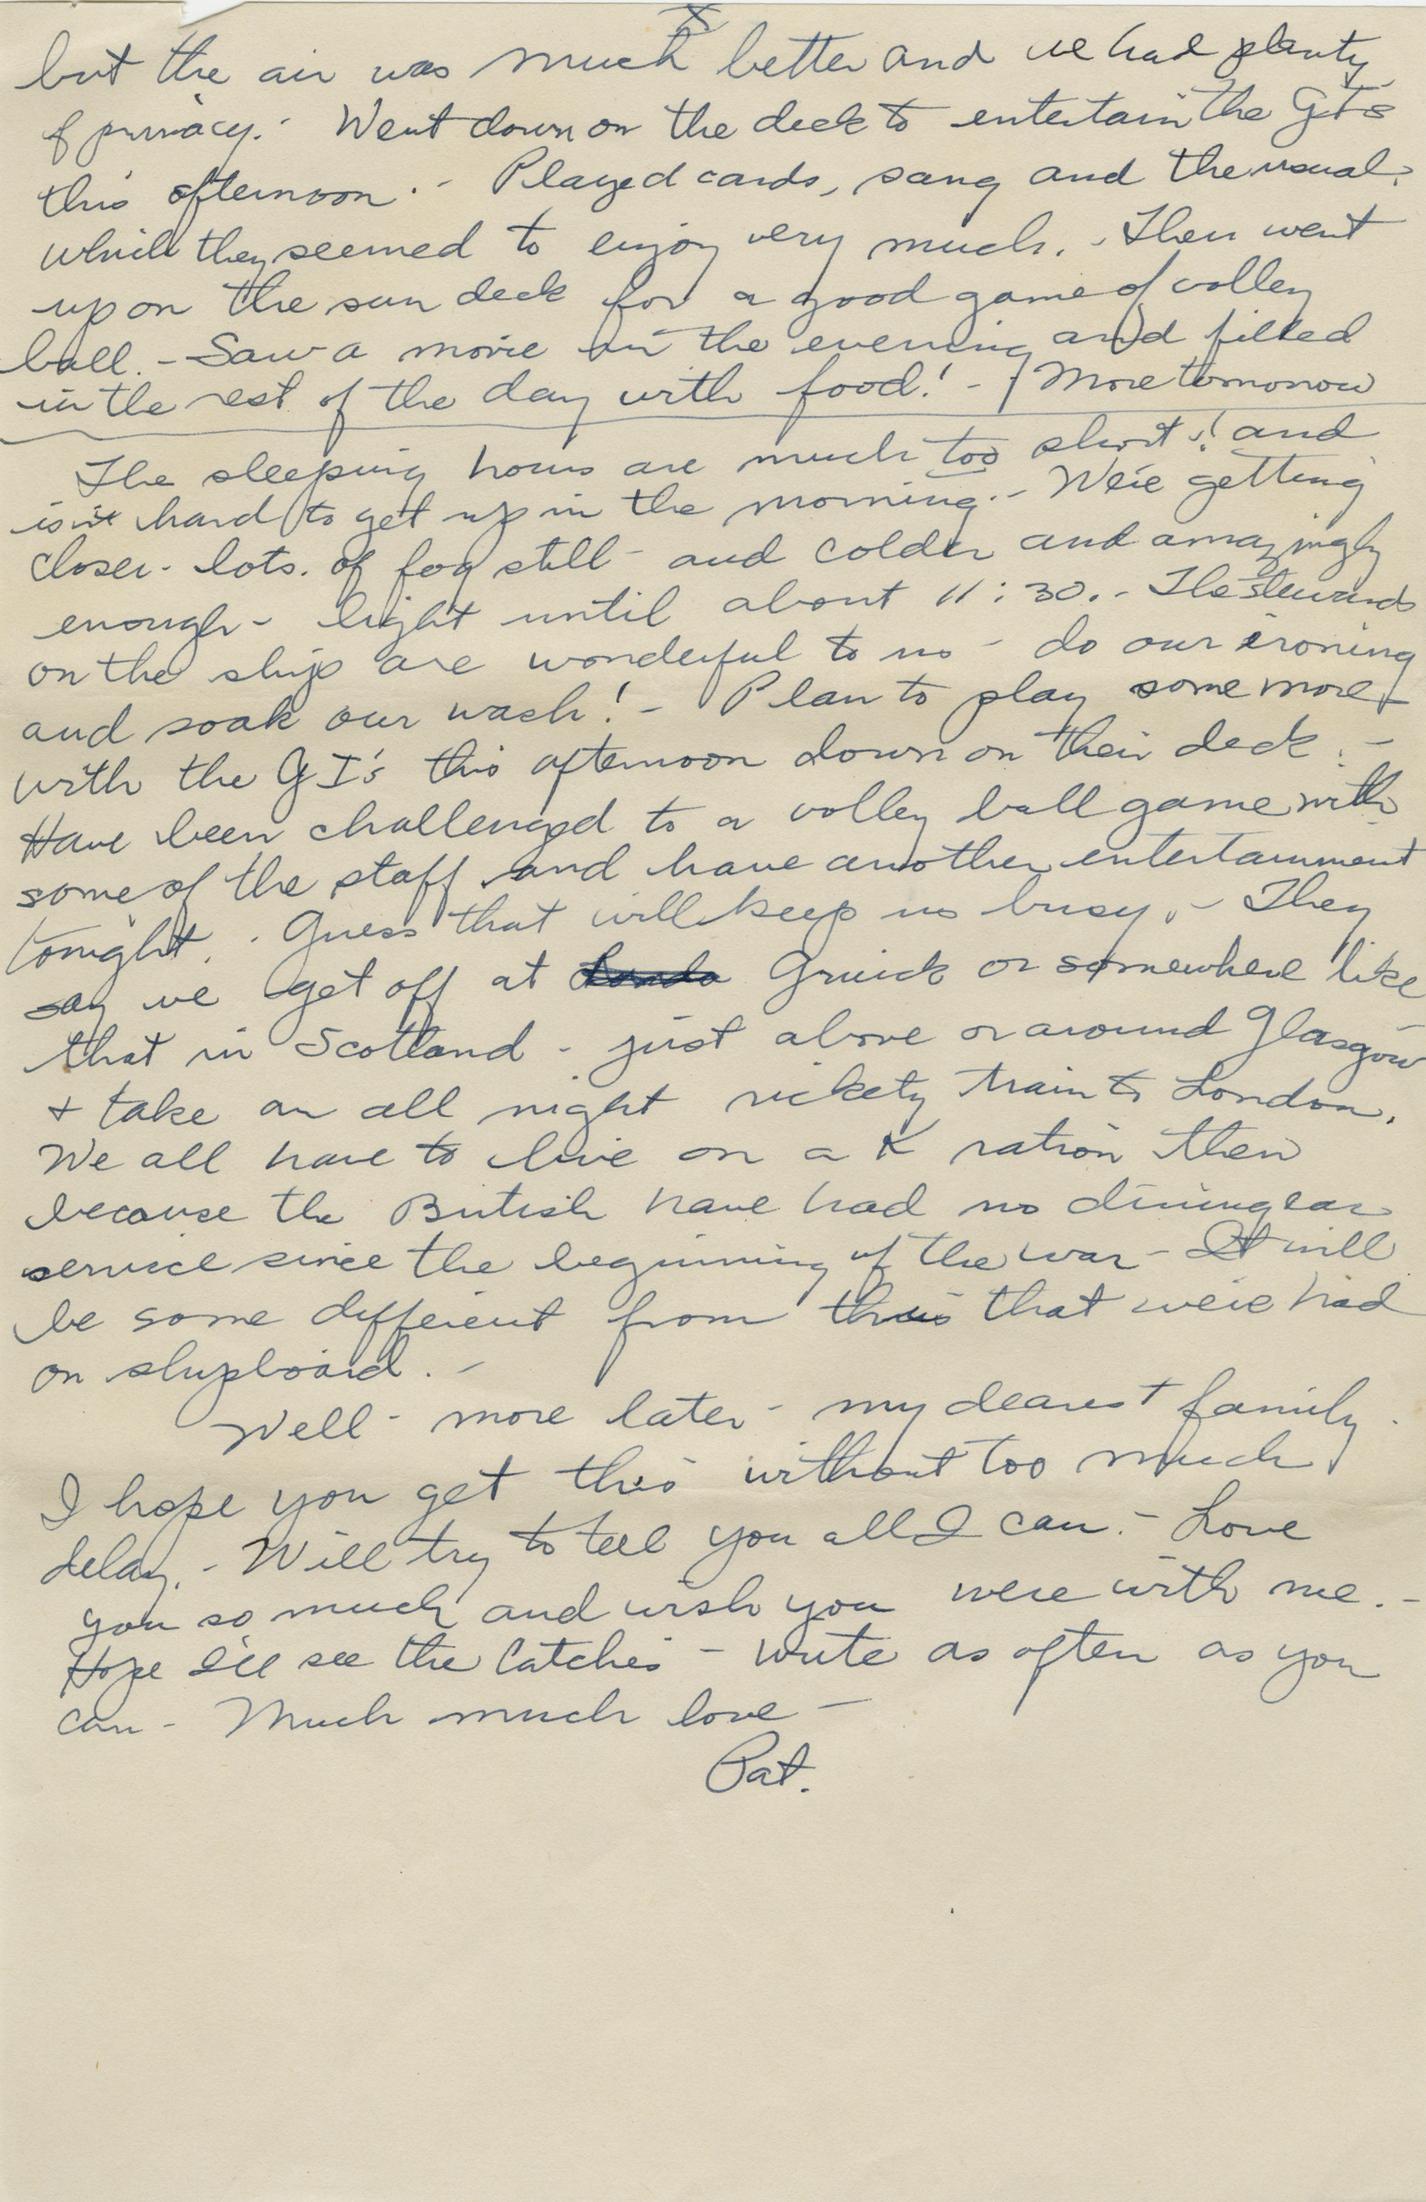 X
but the air was much better and we had plenty
of privacy. - Went down on the deck to entertain the GI's
this afternoon. - Played cards, sang and the usual.
which they seemed to enjoy very much. - Then went
up on the sun deck for a good game of volley
ball. - Saw a movie in the evening and filled
in the rest of the day with food! - / More tomorrow
The sleeping hours are much too short! and
is it hard to get up in the morning. - We're getting
closer - lots of fog still - and colder and amazingly
enough - light until about 11:30. - The stewards
on the ship are wonderful to us - do our ironing
and soak our wash! - Plan to play some more
with the GI's this afternoon down on their deck. -
Have been challenged to a volley ball game with
some of the staff and have another entertainment
tonight. Guess that will keep us busy. - They
say we get off at Gruick or somewhere like
that in Scotland - just above or around Glasgow
+ take an all night rickety train to London.
We all have to live on a K ration then
because the British have had no dining car
service since the beginning of the war - It will
be some different from that we've had
on shipboard. -
Well - more later - my dearest family.
I hope you get this without too much
delay. - Will try to tell you all I can. - Love
you so much and wish you were with me. -
Hope I'll see the Catches - Write as often as you
can - Much much love -
Pat.